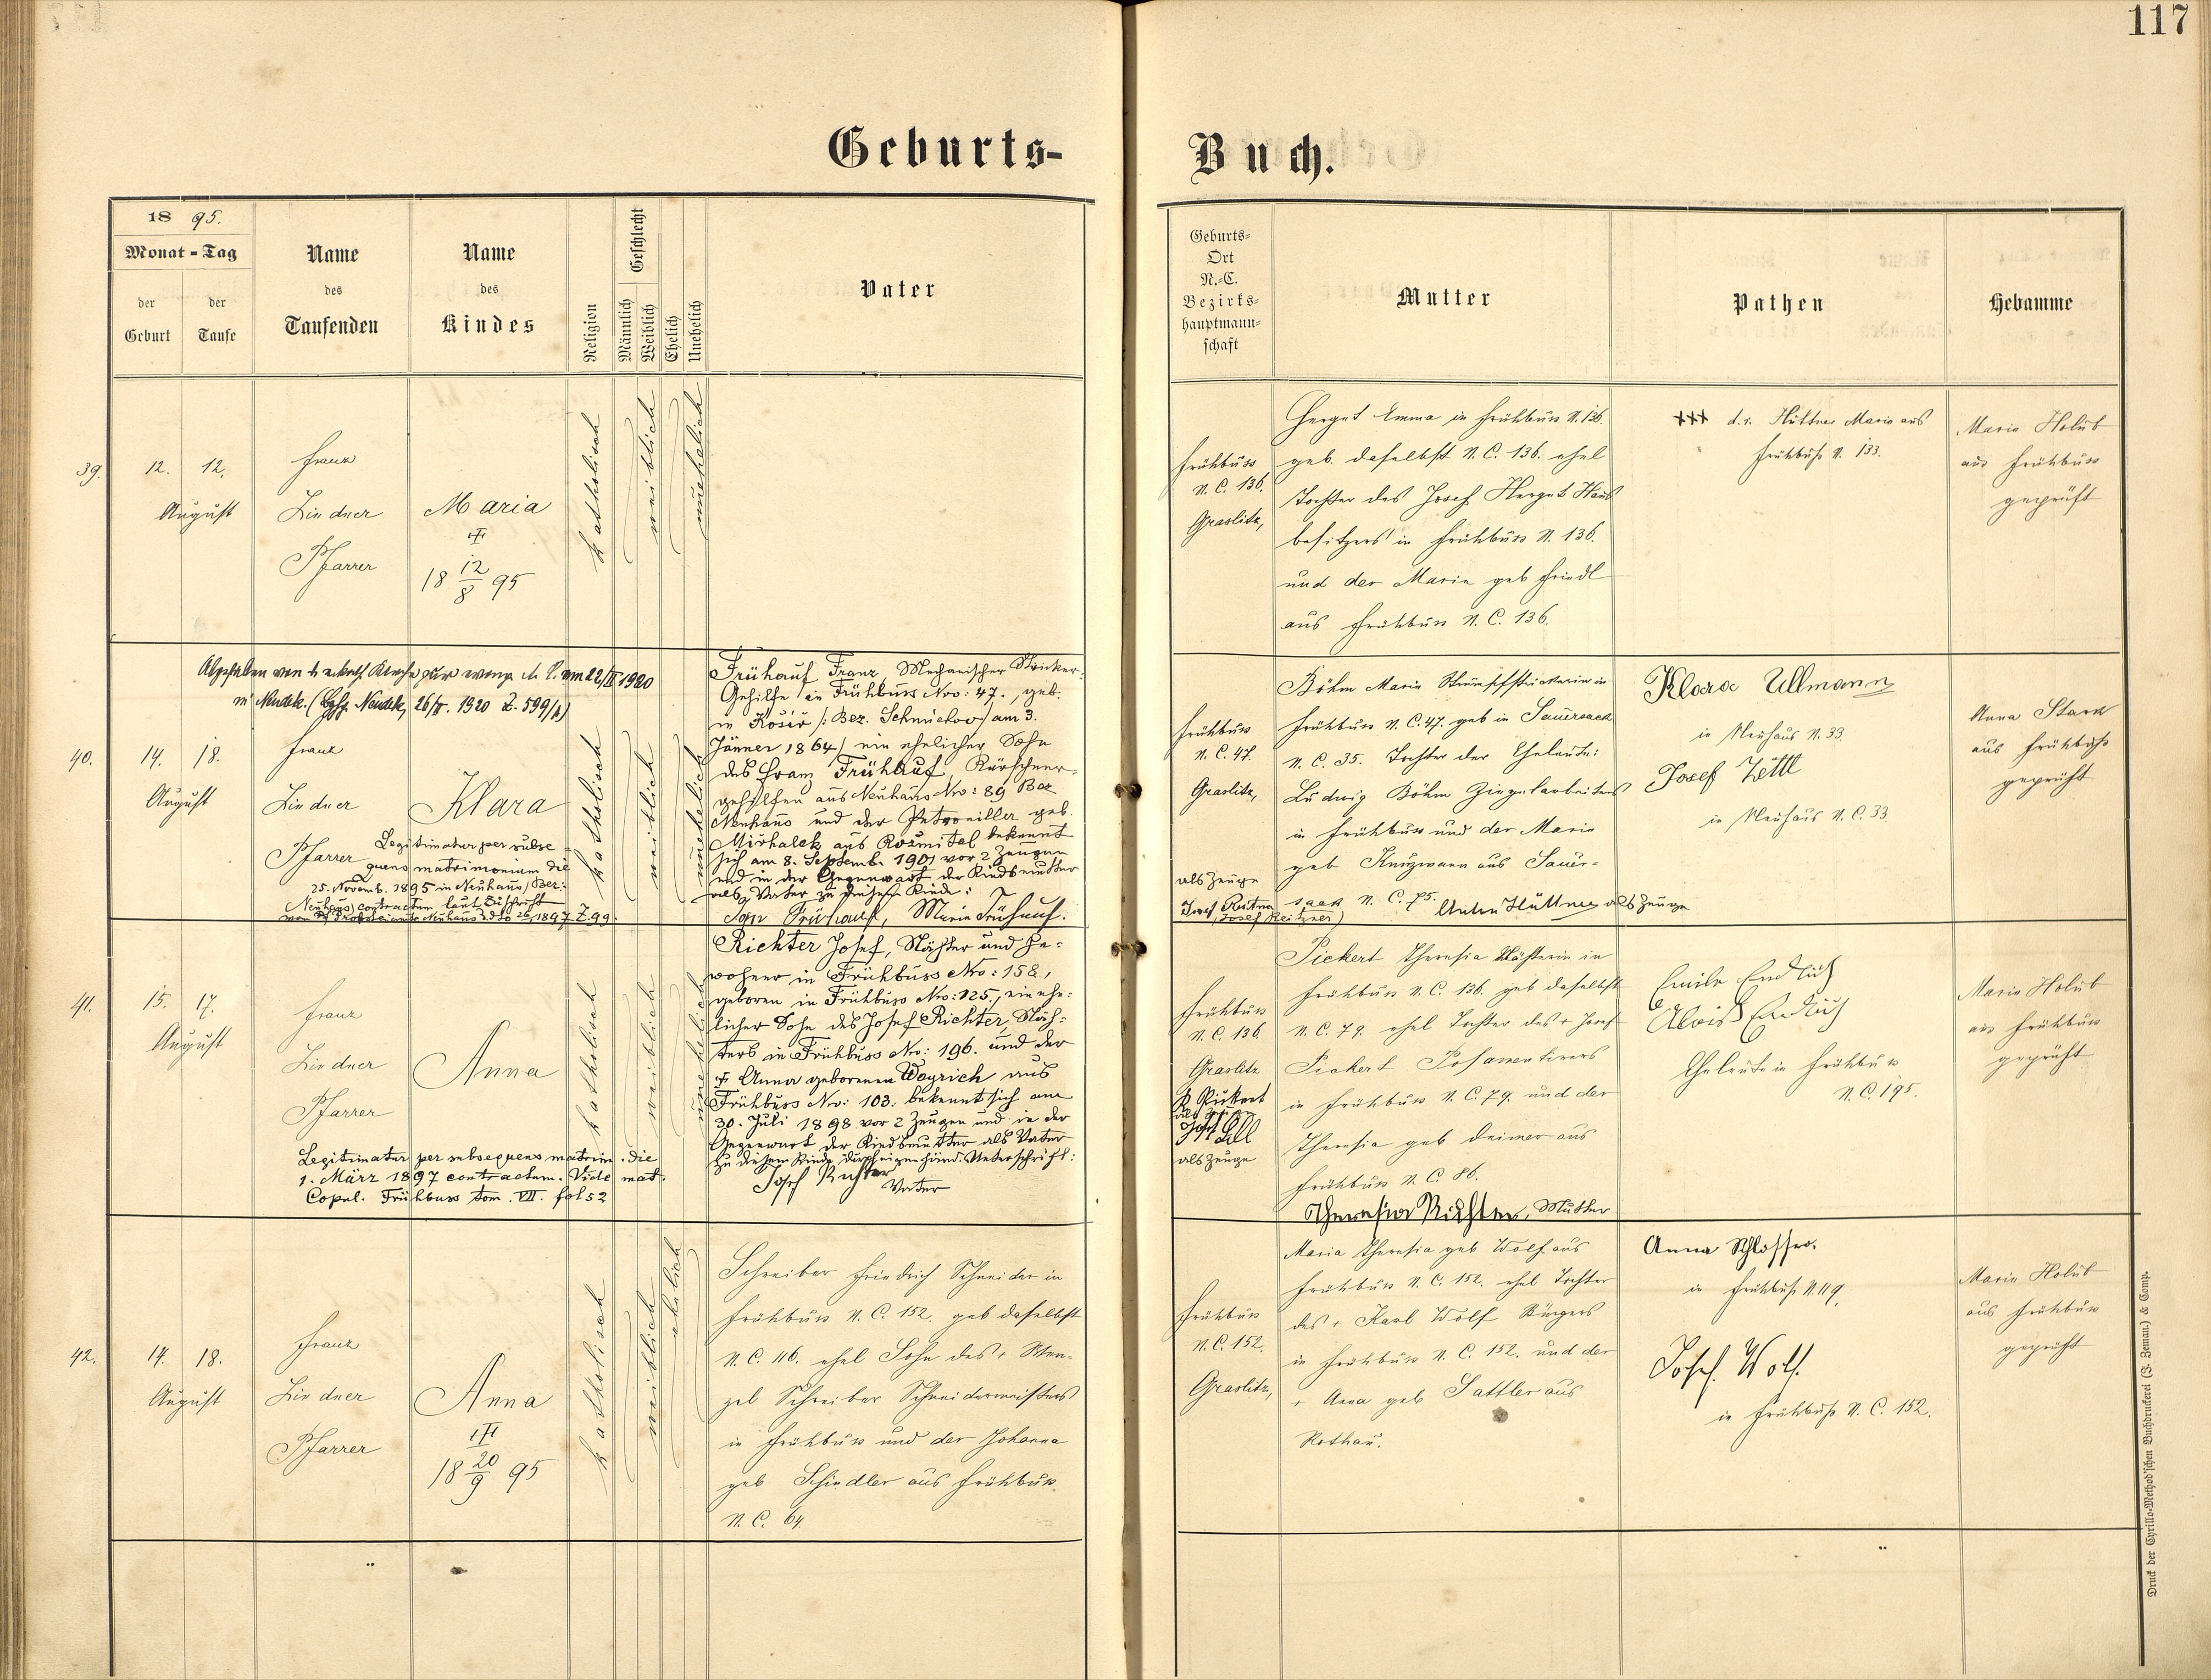 117
Geburts-
Buch.
18 95.
Monat - Tag
der
Geburt
der
Taufe
Name
des
Taufenden
Name
des
Kindes
Religion
Geschlecht
Männlich
Weiblich
Ehelich
Unehelich
Vater
Geburts-
Ort
N.-C.
Bezirks-
hauptmann-
schaft
Mutter
Pathen
Hebamme
39.
12. 12.
August
Franz
Lindner
Pfarrer
Maria
18 12/8 95
katholisch
weiblich
unehelich
Frühbuss
N. C. 136.
Graslitz,
Herget Emma in Frühbuss N. 136.
geb. daselbst N. C. 136. ehel
Tochter des Josef Herget Haus
besitzers in Frühbuss N. 136.
und der Maria geb Friedl
aus Frühbuss N. C. 136.
+++ d. i. Hüttner Maria aus
Frühbuss N. 133.
Maria Holub
aus Frühbuss
geprüft
40.
14. 18.
August
in Neudek. 26/II. 1920 Z. 599/
Franz
Lindner
Pfarrer
Klara
Legitimatur per subse-
quens matrimonium die
25. Novemb. 1895 in Neuhaus, Bez:
Neuhaus contractum laut Zuschrift
1897 Z 99.
katholisch
weiblich
unehelich
Frühauf Franz, Mechanischer Stricker-
Gehilfe in Frühbuss Nro: 47., geb.
in Košíř /: Bez. Schmichov/ am 3.
Jänner 1864/ ein ehelicher Sohn
des Franz Frühauf, Kürschner-
gehilfen aus Neuhaus Nro: 89 Bez
Neuhaus und der Petronilla geb.
Michalek aus Rožmital bekennt
sich am 8. Septemb. 1901 vor 2 Zeugen
und in der Gegenwart der Kindsmutter
als Vater zu diesem Kinde:
Frühauf, Marie Frühauf.
Frühbuss
N. C. 47.
Graslitz,
als Zeuge
Josef
Böhm Maria in
Frühbuss N. C. 47. geb in Sauersack
N. C. 35. Tochter der Eheleute:
Ludwig Böhm Ziegelarbeiters
in Frühbuss und der Maria
geb aus Sauer-
sack N. C. 75.
Anton Hüttner als Zeuge
Klara Ullmann
in Neuhaus N. 33.
Josef Zettl
in Neuhaus N. C. 33.
Anna Stark
aus Frühbuss
geprüft
41.
15. 17.
August
Franz
Lindner
Pfarrer
Anna
Legitimatur per subsequens matrim. die
1. März 1897 contractum. Vide mat.
Copul. Frühbuss tom. VII. fol 52
katholisch
weiblich
unehelich
Richter Josef, Näher und In-
wohner in Frühbuss Nro: 158,
geboren in Frühbuss Nro: 125., ein ehe-
licher Sohn des Josef Richter, Näh-
ters in Frühbuss Nro: 196. und der
+ Anna geborenen Weyrich aus
Frühbuss Nro: 103. bekennt sich am
30. Juli 1898 vor 2 Zeugen und in der
Gegenwart der Kindsmutter als Vater
zu diesem Kinde durch eigenhänd. Unterschrift:
Josef Richter
Vater
Frühbuss
N. C. 136.
Graslitz
als Zeuge
Josef Lill
als Zeuge
Pickert Theresia Nähterin in
Frühbuss N. C. 136. geb daselbst
N. C. 79. ehel Tochter des + Josef
Pickert Posamentirers
in Frühbuss N. C. 79. und der
Theresia geb Deimer aus
Frühbuss N. C. 86.
Theresia Richter, Mutter
Emilie Endlich
Alois Endlich
Eheleute in Frühbuss
N. C. 195.
Maria Holub
aus Frühbuss
geprüft
42.
14. 18.
August
Franz
Lindner
Pfarrer
Anna
18 20/9 95
katholisch
weiblich
ehelich
Schreiber Friedrich Schneider in
Frühbuss N. C. 152. geb daselbst
N. C. 116. ehel Sohn des + Wen-
zel Schreiber Schneidermeisters
in Frühbuss und der Johanna
geb Schindler aus Frühbuss
N. C. 64.
Frühbuss
N. C. 152.
Graslitz,
Maria Theresia geb Wolf aus
Frühbuss N. C. 152. ehel Tochter
des + Karl Wolf Bürgers
in Frühbuss N. C. 152. und der
+ Anna geb Sattler aus
Rothau.
Anna Schlosser.
in Frühbuss N. 119.
Josef Wolf.
in Frühbuss N. C. 152.
Maria Holub
aus Frühbuss
geprüft
Druck der Cyrillo-Method'schen Buchdruckerei (J. Zeman.) & Comp.